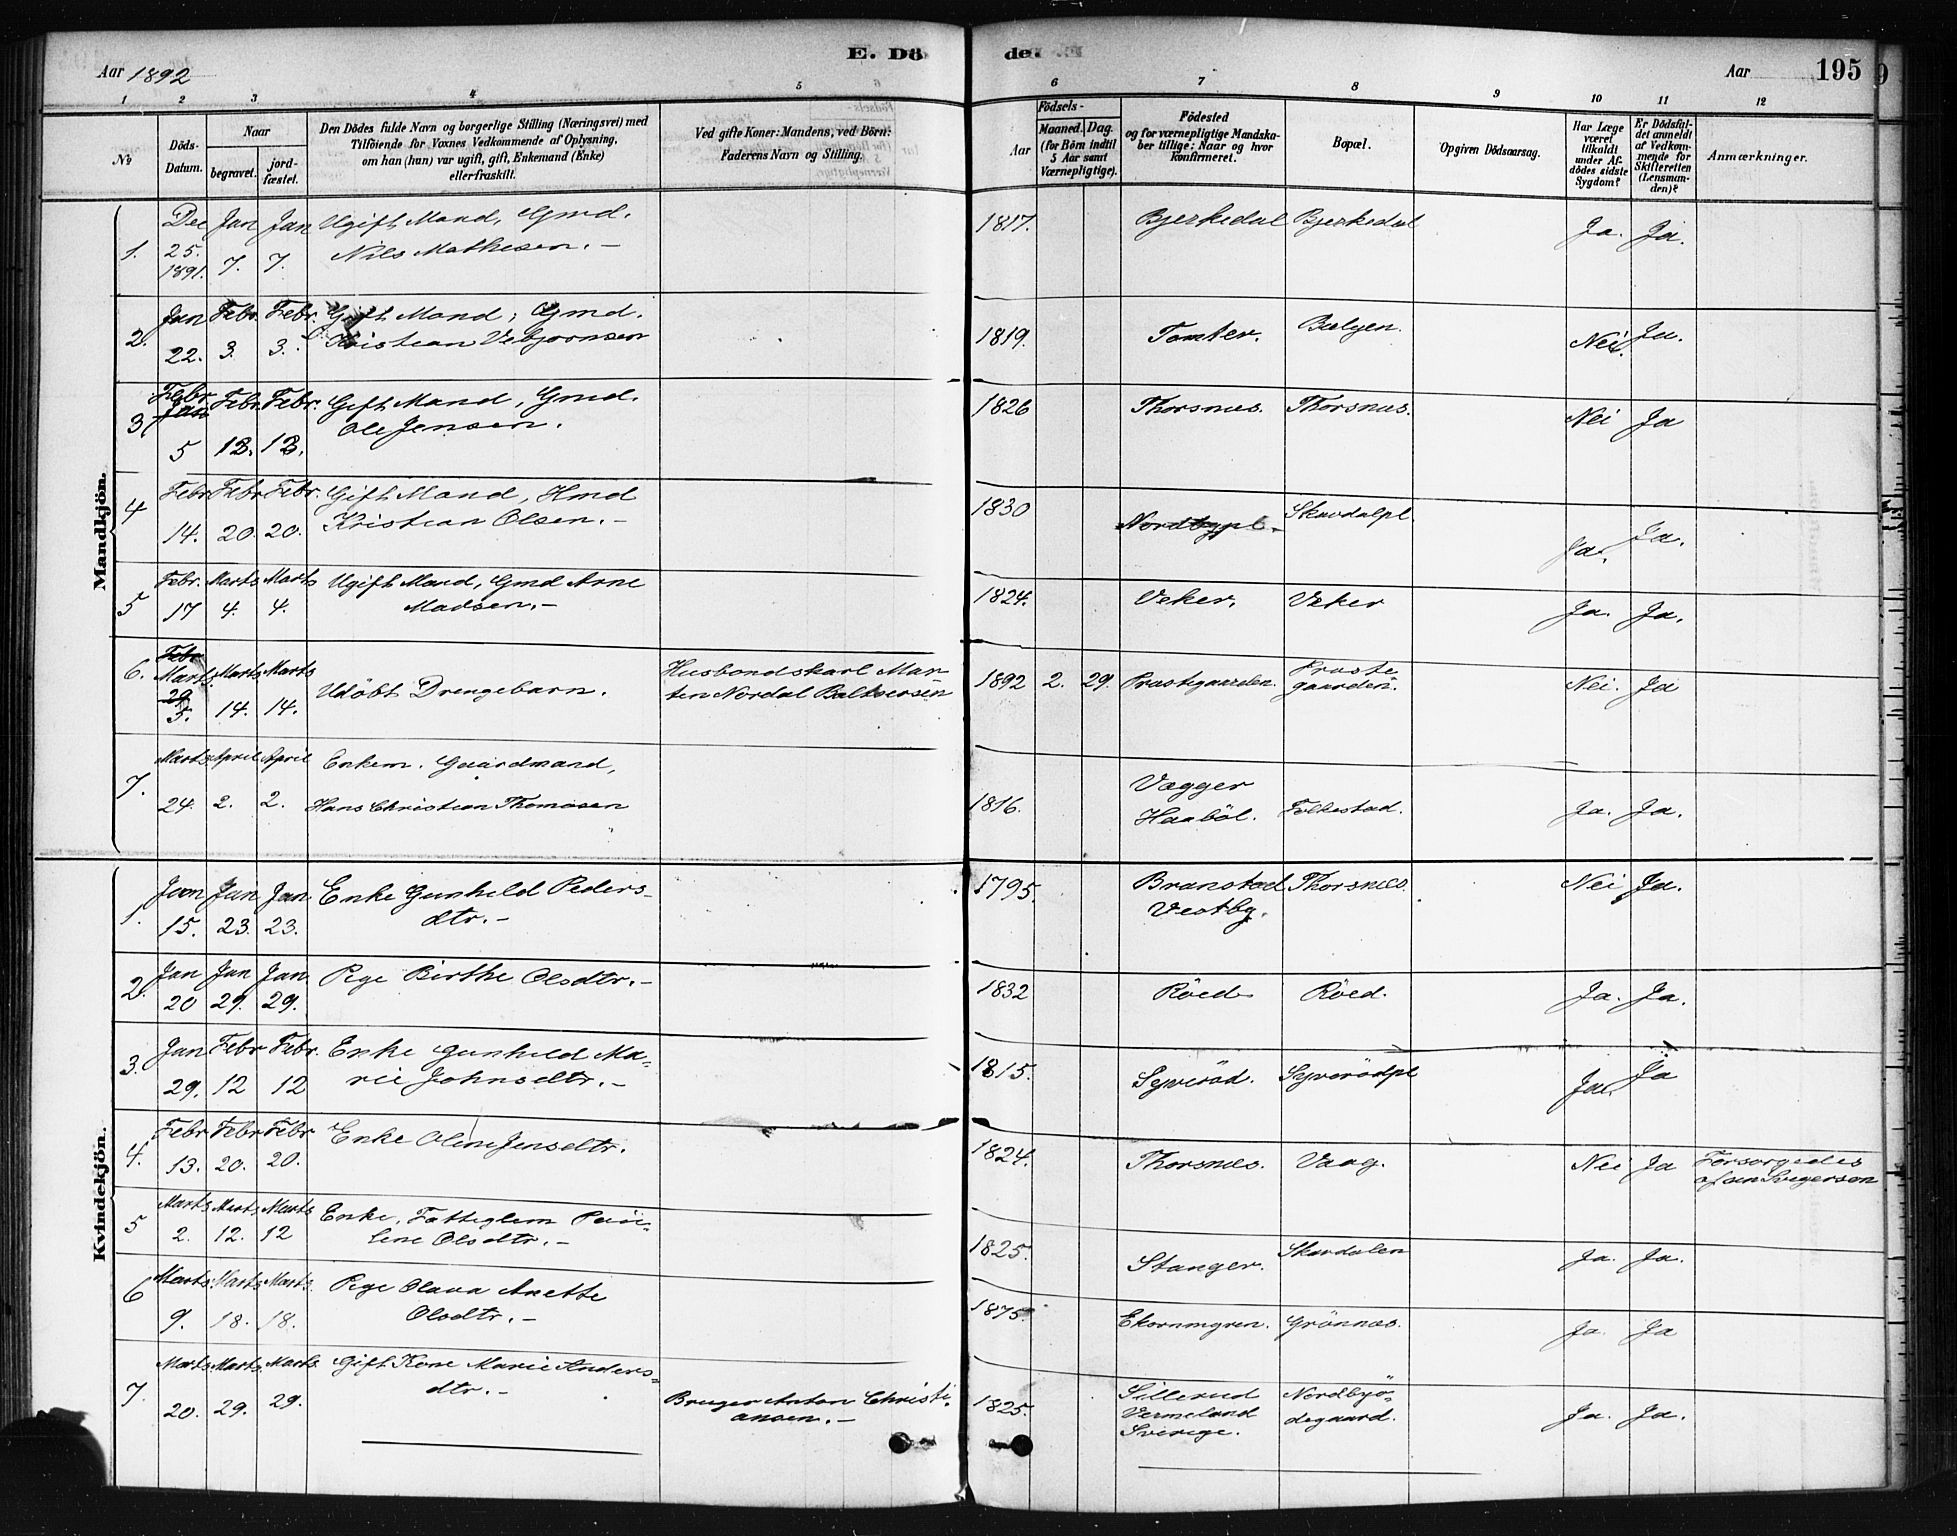 E. Dö
de.
Aar 1892
Aar 195
1 2 3 4 5 6 7 8 9 10 11 12
No
Döds-Datum.
Naar
begravet.
jord-fæstet.
Den Dödes fulde Navn og borgerlige Stilling (Næringsvei) med
Tilföiende for Voxnes Vedkommende af Oplysning,
om han (hun) var ugift, gift, Enkemand (Enke)
eller fraskilt.
Ved gifte Koner: Mandens, ved Börn:
Faderens Navn og Stilling.
Födsels-
Aar
Maaned. Dag.
(for Börn indtil
5 Aar samt
Værnepligtige).
Födested
og for værnepligtige Mandska-
ber tillige: Naar og hvor
konfirmeret.
Bopæl.
Opgiven Dödsaarsag.
Har Læge
været
tilkaldt
under Af-
dödes sidste
Sygdom?
Er Dödsfal-
det anmeldt
af Vedkom-
mende for
Skifteretten
(Lensman-
den)?
Anmærkninger.
Mandkjön.
1. Dec 25. 1891. Jan 7. Jan 7. Ugift Mand, Gmd.
Nils Mathesen.- 1817. Bjerkedal Bjerkedal Ja. Ja.
2. Jan 22. Febr. 3. Febr. 3. Gift Mand, Gmd.
Kristian Vebjornsen 1819. Tomter. Bælgen. Nei. Ja.
3 Febr. Jan 5 Febr. 13. Febr. 13. Gift Mand, Gmd.
Ole Jensen. 1826 Thorsnæs. Thorsnæs. Nei Ja
4 Febr 14. Febr 20. Febr. 20. Gift Mand, Hmd
Kristian Olsen.- 1830 Nordbypl. Skavdalpl. Ja. Ja.
5 Febr. 17 Marts 4. Marts 4. Ugift Mand, Gmd Arne
Madsen.- 1824. Veker. Veker Ja. Ja.
6. Febr Marts 29 5. Marts 14. Marts 14. Udöbt Drengebarn. Husbondskarl Mar-
ten Nordal Baltsersen 1892 2. 29. Præstegaarden. Præste-
gaarden. Nei. Ja
7. Marts 24. April 2. April 2. Enkem. Gaardmand,
Hans Christian Thomasen 1816. Vægger
Haaböl. Folkestad. Ja. Ja.
Kvindekjön.
1. Jan 15. Jan 23. Jan 23. Enke Gunhild Peders-
dtr.- 1795. Branstad
Vestby. Thorsnæs. Nei Ja.
2. Jan 20 Jan 29. Jan 29. Pige Birthe Olsdtr.- 1832 Röed Röed. Ja. Ja.
3. Jan 29. Febr 12 Febr. 12 Enke Gunhild Ma-
rie Johnsdtr.- 1815. Syveröd. Syverödpl Ja. Ja
4. Febr 13. Febr 20. Febr 20. Enke Oline Jensdtr. 1824. Thorsnæs. Vaag. Nei Ja Forsørgedes
af en Svigersøn
5 Marts 2. Marts 12. Marts 12 Enke, Fattiglem Pau-
line Olsdtr.- 1825. Stanger. Skavdalen Ja. Ja.
6 Marts 9. Marts 18. Marts. 18. Pige Olava Anette
Olsdtr.- 1875. Ekornmyren. Grönnæs. Ja. Ja
7 Marts 20. Marts. 29. Marts 29. Gift Kone Marie Anders-
dtr.- Bruger Anton Christi-
ansen.- 1825. Sillerud
Vermeland
Sverige. Nordbyö-
degaard. Ja. Ja.